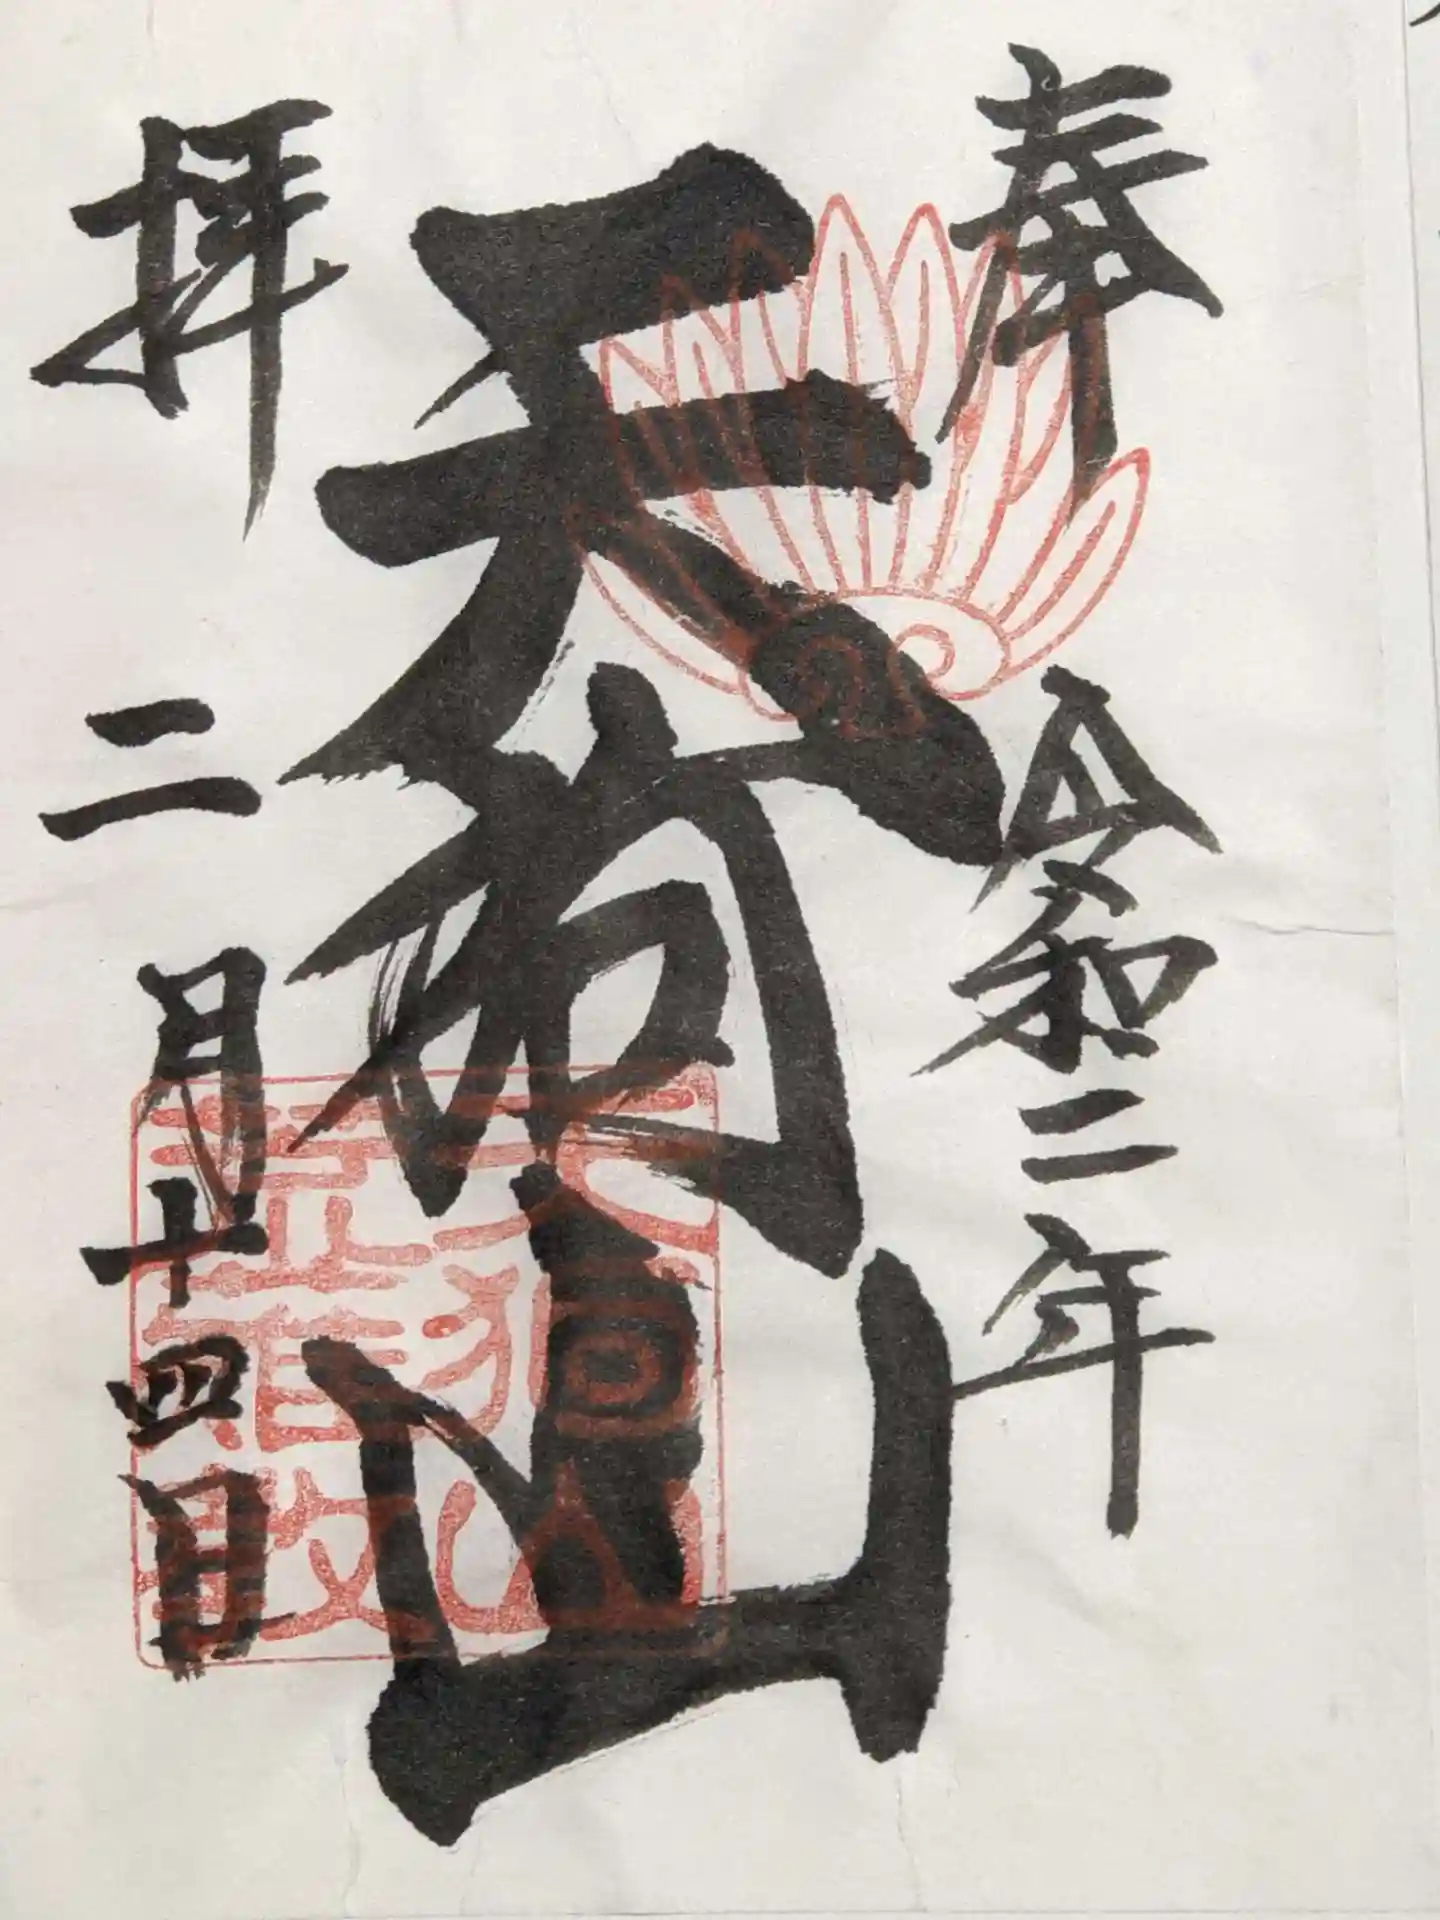 奉 令和二年
天狗山
拝 二月十四日